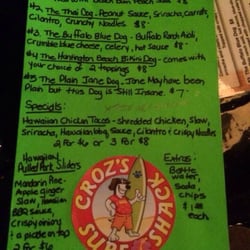 #2 The Thai Dog - Peanut Sauce, Sriracha, Carrots,
Cilantro, Crunchy Noodles $8-
#3 The Buffalo Blue Dog - Buffalo Ranch Aioli,
Crumble blue cheese, celery, hot sauce $8-
#4 The Huntington Beach Bikini Dog - comes with
your choice of 2 toppings $8-
#5 The Plain Jane Dog - Jane May have been
Plain but this Dog is Still Insane. $7-
Specials:
Hawaiian Chicken Tacos - shredded Chicken, Slaw,
Sriracha, Hawaiian bbq Sauce, Cilantro & Crispy Noodles
2 for $6 or 3 for $8
Hawaiian
Pulled Pork Sliders
Mandarin
Apple Ginger
Slaw, Hawaiian
BBQ Sauce,
Crispy onion
& a pickle on top
2 for
CROZ'S
SURF
SHACK
Extras:
Bottle
water,
Soda,
chips
$1-
each